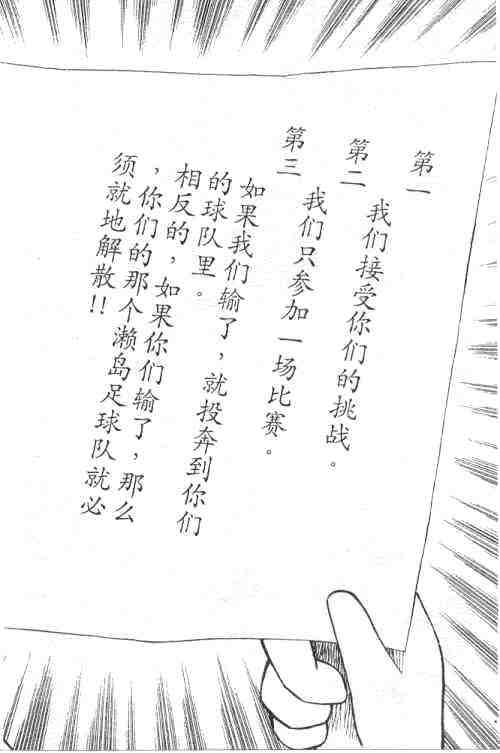 第一
我们接受你们的挑战。
第二
我们只参加一场比赛。
第三
如果我们输了，就投奔到你们
的球队里。
相反的，如果你们输了，那么
，你们的那个濑岛足球队就必
须就地解散!!